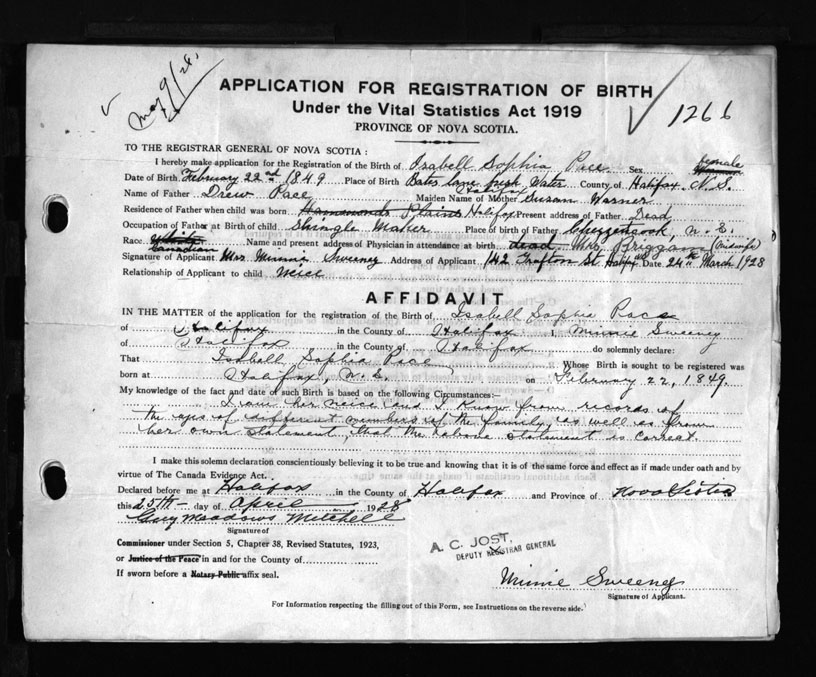 May 9/28.
APPLICATION FOR REGISTRATION OF BIRTH
Under the Vital Statistics Act 1919
1266
PROVINCE OF NOVA SCOTIA.
TO THE REGISTRAR GENERAL OF NOVA SCOTIA :
I hereby make application for the Registration of the Birth of Isabell Sophia Pace Sex female
Date of Birth February 22nd 1849 Place of Birth Bates Lane fresh Water Halifax County of Halifax. N.S.
Name of Father Drew Pace Maiden Name of Mother Susan Warner
Residence of Father when child was born Hammonds Plains Halifax Present address of Father Dead
Occupation of Father at Birth of child Shingle Maker Place of birth of Father Chezzetcook, N.S.
Race White Canadian Name and present address of Physician in attendance at birth dead Mrs. Briggan (Midwife)
Signature of Applicant Mrs Minnie Sweeney Address of Applicant 142 Grafton St. Halifax Date 24th March 1928
Relationship of Applicant to child neice
AFFIDAVIT
IN THE MATTER of the application for the registration of the Birth of Isabell Sophia Pace
of Halifax in the County of Halifax I, Minnie Sweeney
of Halifax in the County of Halifax do solemnly declare:
That Isabell Sophia Pace Whose Birth is sought to be registered was
born at Halifax, N.S. on February 22, 1849.
My knowledge of the fact and date of such Birth is based on the following Circumstances:—
I am her neice and I know from records of
the ages of different members of the family, as well as from
her own statement, that the above statement is correct.
I make this solemn declaration conscientiously believing it to be true and knowing that it is of the same force and effect as if made under oath and by
virtue of The Canada Evidence Act.
Declared before me at Halifax in the County of Halifax and Province of Nova Scotia
this 25th day of April 1928
Guy Meadows Mitchell
Signature of
Commissioner under Section 5, Chapter 38, Revised Statutes, 1923,
or Justice of the Peace in and for the County of
If sworn before a Notary Public affix seal.
A. C. JOST,
DEPUTY REGISTRAR GENERAL
Minnie Sweeney
Signature of Applicant.
For Information respecting the filling out of this Form, see Instructions on the reverse side.